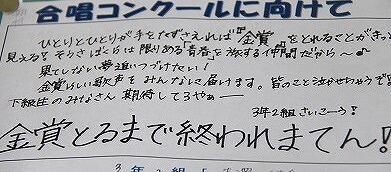 合唱コンクールに向けて
ひとりとひとりが手をたずさえれば『金賞』をとれることがきっ
見える! そうさぼくらは限りある『青春』を旅する『仲間』だから〜♪
果てしない夢追いつづけたい!
金賞らしい歌声をみんなに届けます。皆のこと泣かせちゃうぞ!
下級生のみなさん期待しててろやぁー
3年2組さいこーう!
金賞とるまで終われまてん!
3年2組